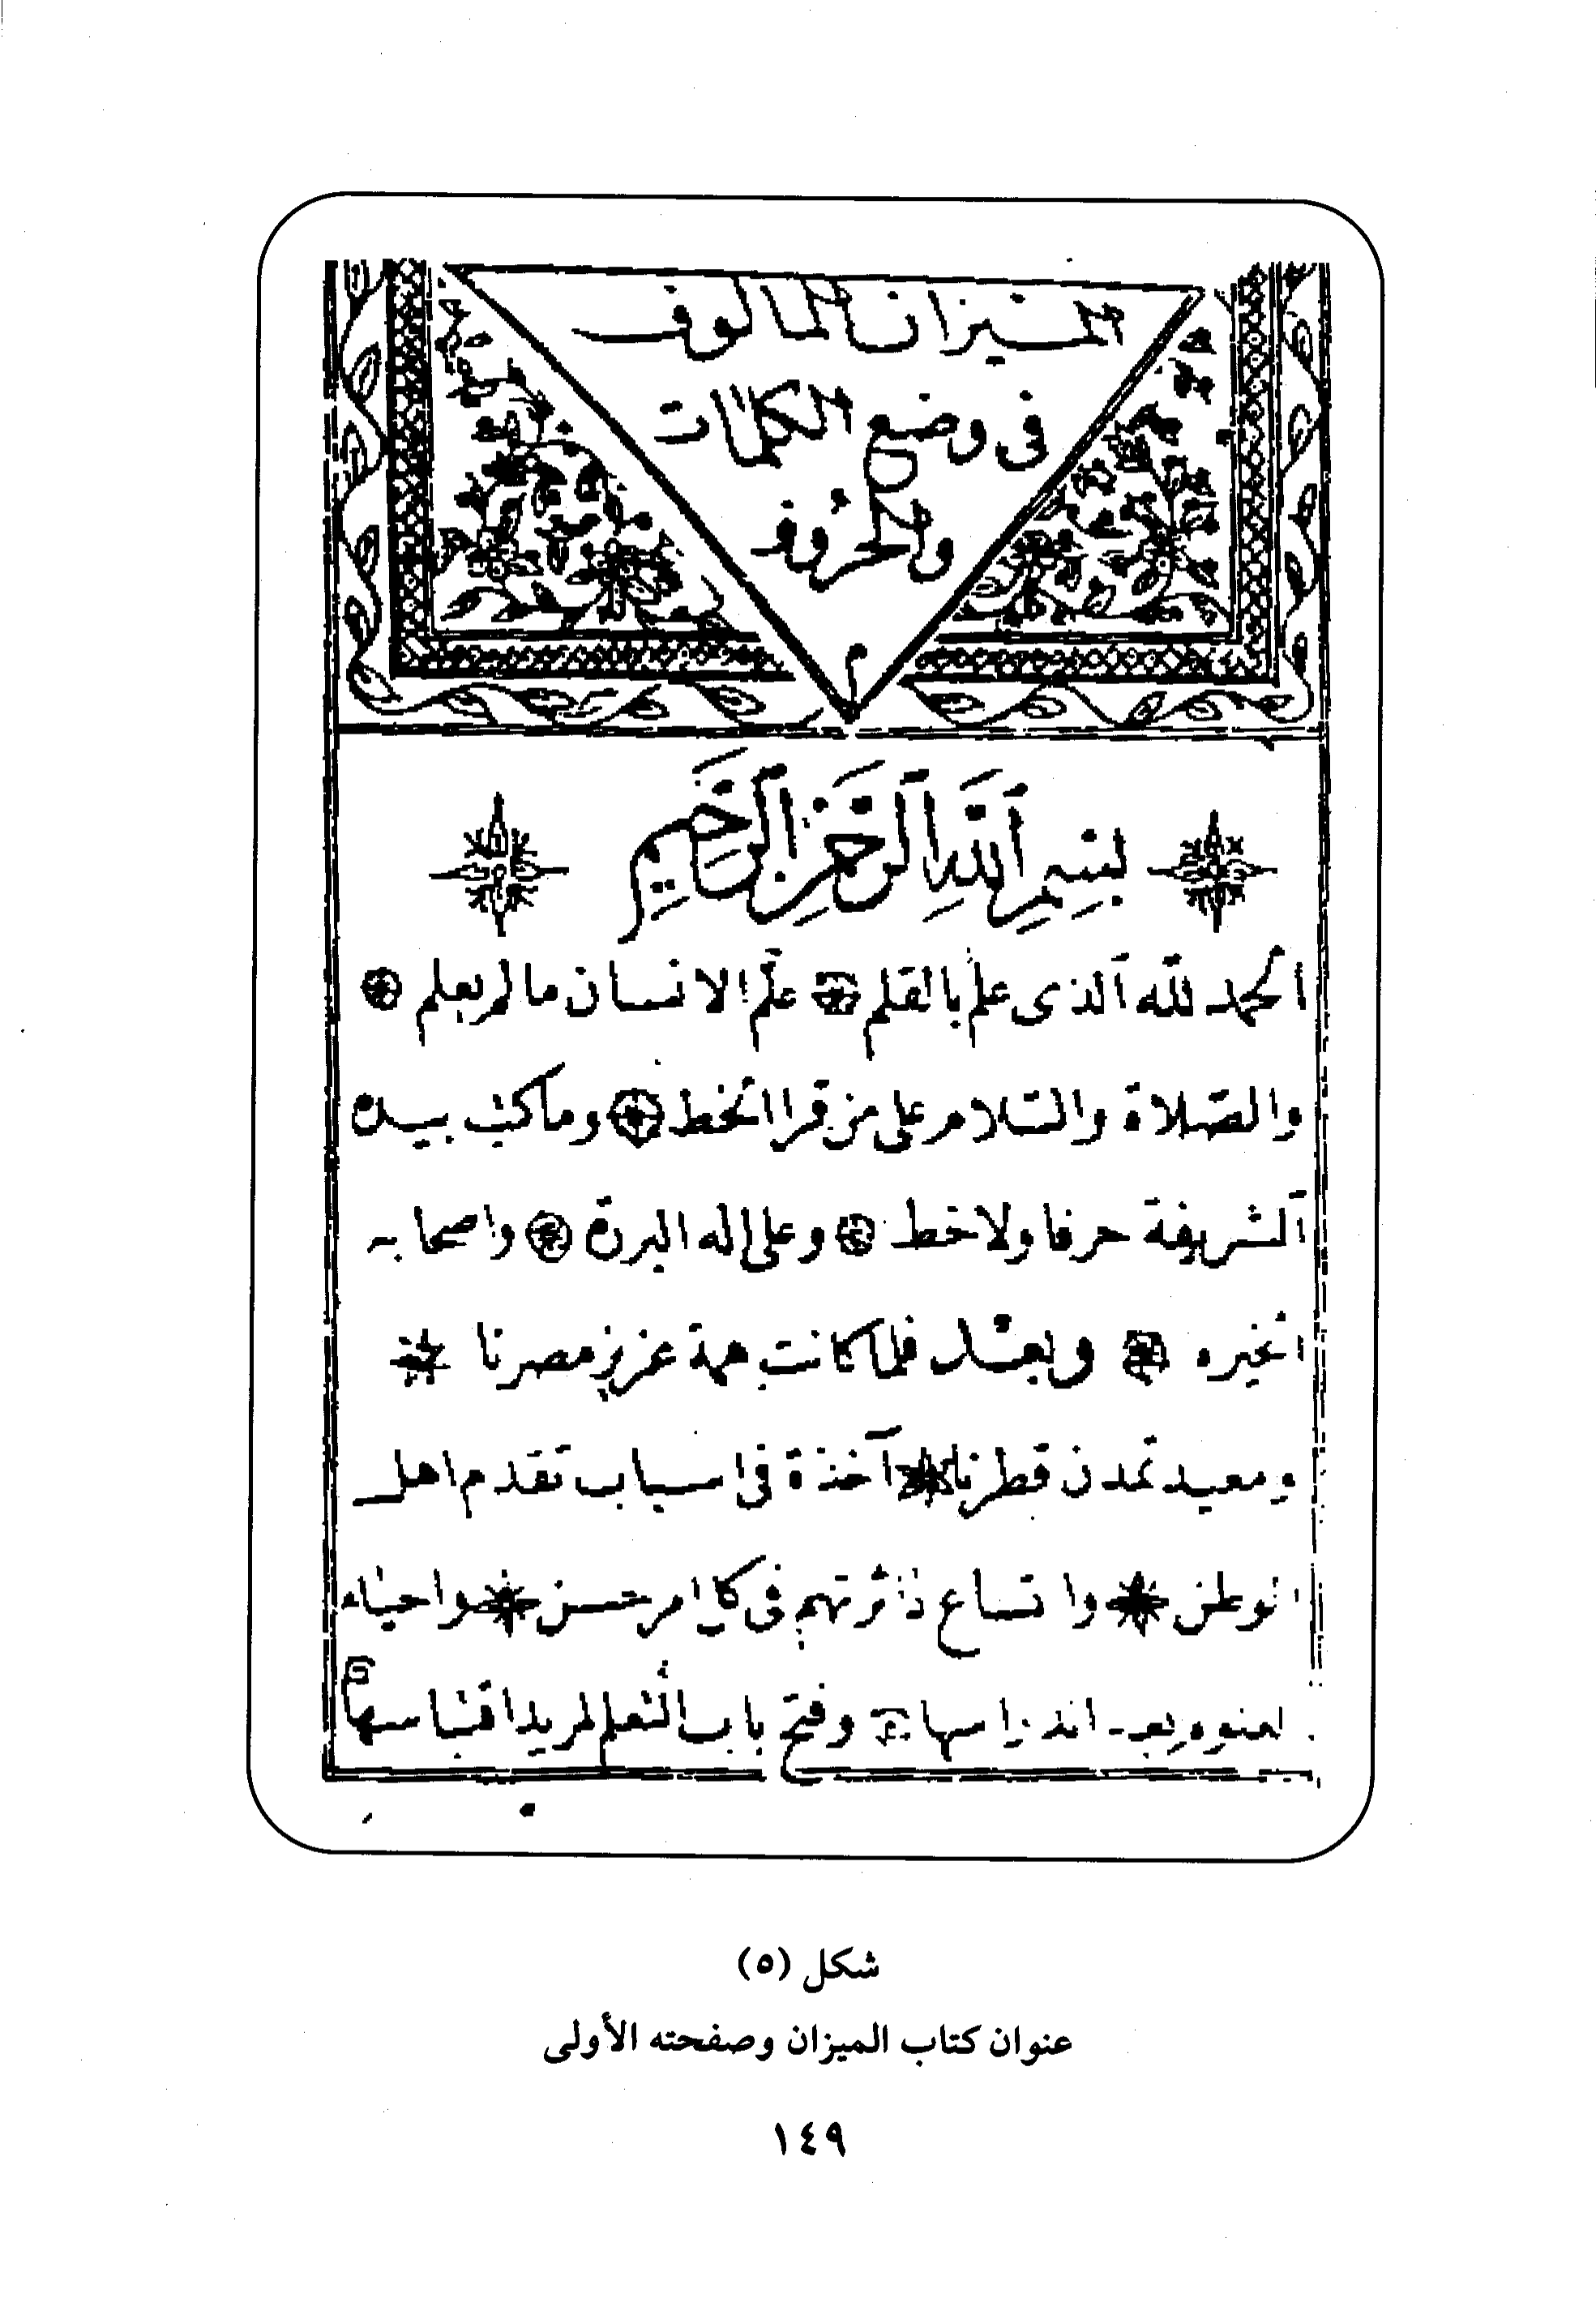 الميزان المألوف
فى وضع الكلمات
والحروف
بِسْمِ ٱللَّهِ ٱلرَّحْمَٰنِ ٱلرَّحِيمِ
الحمد للّه ٱلذى علم بالقلم علّم الانسان مالم يعلم
والصّلاة والسّلام على من قرا الخط وما كتب بيده
ٱلشريفة حرفا ولا خط وعلى اله البررة واصحابه
الخيره وبعد فلما كانت همة عزيز مصرنا
ومعيد تمدن قطرنا آخذة فى اسباب تقدم اهل
الوطن واتساع دائرتهم فى كل امر حسن واحياء
بعد اندراسها وفتح باب التعلم لمريد اقتباسها
شكل (٥)
عنوان كتاب الميزان وصفحته الأولى
١٤٩